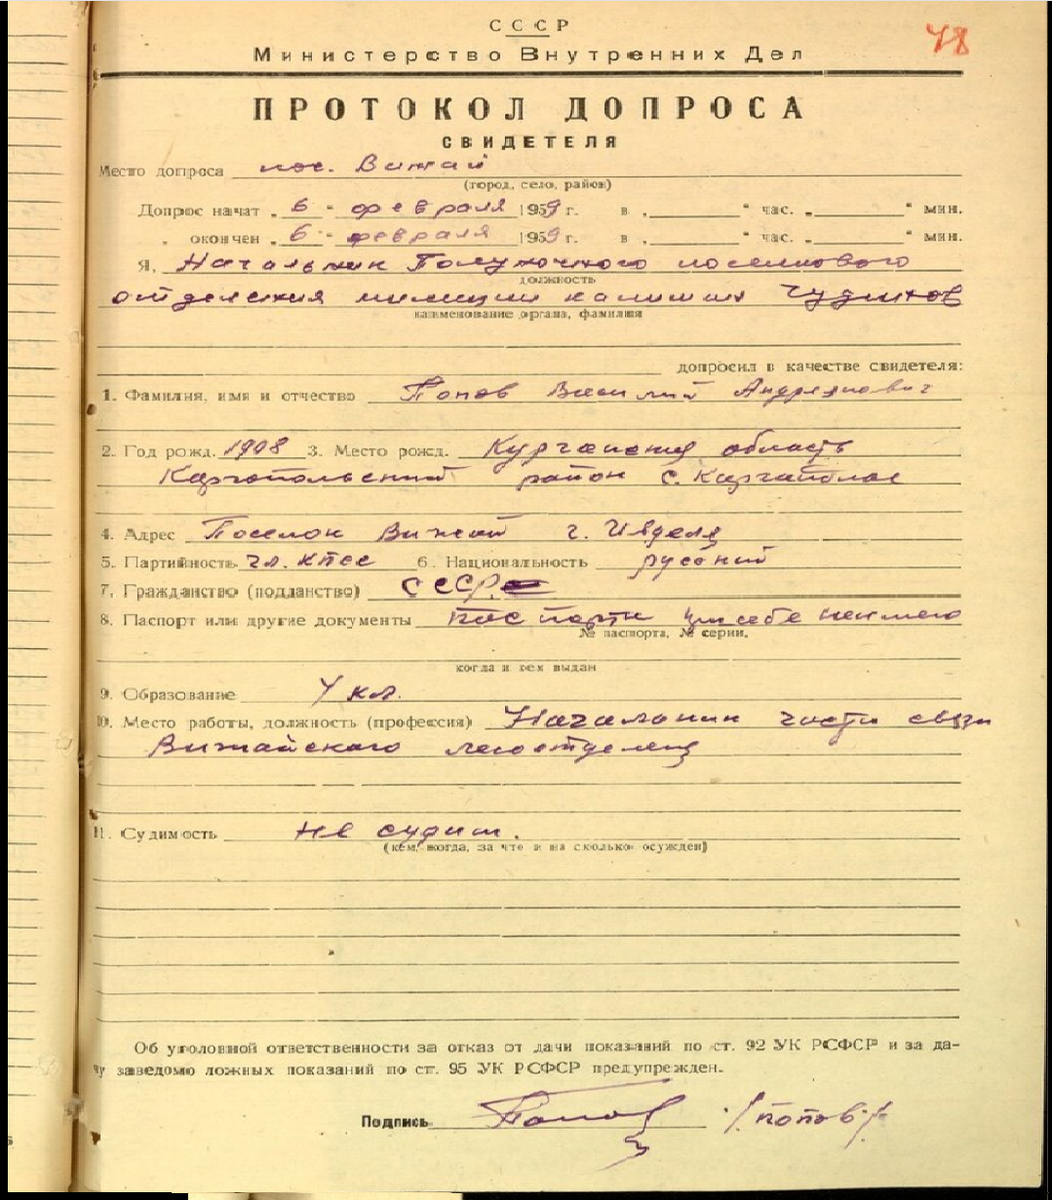 48
СССР
Министерство Внутренних Дел
ПРОТОКОЛ ДОПРОСА
СВИДЕТЕЛЯ
Место допроса пос. Вижай
(город, село, район)
Допрос начат „ 6 " февраля 1959 г. в „ " час. „ " мин.
„ окончен „ 6 " февраля 1959 г. в „ " час. „ " мин.
Я, Начальник Полуночного поселкового
должность
отделения милиции капитан Чудинов
наименование органа, фамилия
допросил в качестве свидетеля:
1. Фамилия, имя и отчество Попов Василий Андреянович
2. Год рожд. 1908 3. Место рожд. Курганская область
Каргопольский район с.
4. Адрес Поселок Вижай г. Ивделя
5. Партийность чл. КПСС 6. Национальность русский
7. Гражданство (подданство) СССР
8. Паспорт или другие документы паспорта при себе неимею
№ паспорта, № серии,
когда и кем выдан
9. Образование 4 кл.
10. Место работы, должность (профессия) Начальник части связи
Вижайского лаготделения
11. Судимость не судим.
(кем, когда, за что и на сколько осужден)
Об уголовной ответственности за отказ от дачи показаний по ст. 92 УК РСФСР и за да-
чу заведомо ложных показаний по ст. 95 УК РСФСР предупрежден.
Подпись Попов /Попов/